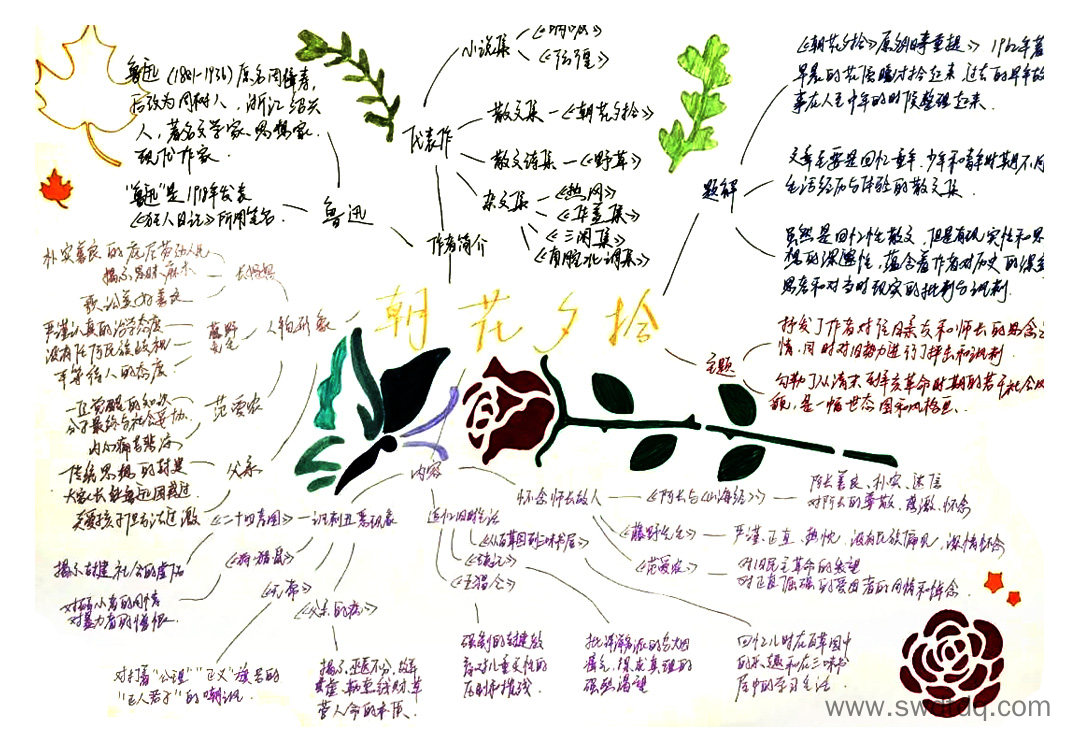 小说集
《呐喊》
《彷徨》
鲁迅(1881-1936)原名周樟寿,
后改为周树人,浙江绍兴
人,著名文学家、思想家、
现代作家.
"鲁迅"是1918年发表
《狂人日记》所用笔名.
鲁迅
代表作
散文集—《朝花夕拾》
散文诗集—《野草》
杂文集
《热风》
《华盖集》
《三闲集》
《南腔北调集》
作者简介
《朝花夕拾》原名《旧事重提》
早晨的花傍晚时拾起来
过去的早年故
事在人到中年的时候整理起来.
题解
文章主要是回忆童年、少年和青年时期不同
生活经历与体验的散文集.
虽然是回忆性散文,但是有现实性和思
想的深邃性,蕴含着作者对历史的深刻
思考和对当时现实的批判与讽刺.
朝花夕拾
主题
抒发了作者对往日亲友和师长的思念之
情,同时对旧势力进行了抨击和讽刺.
勾勒了从清末到辛亥革命时期的若干社会风
貌,是一幅世态图和风格画.
人物形象
朴实善良的底层劳动人民
揭示愚昧、麻木
长妈妈
严谨认真的治学态度
没有任何民族歧视
平等待人的态度
藤野
先生
范爱农
一位觉醒的知识
分子最终与社会妥协.
内心痛苦悲凉
父亲
传统思想的封建
大家长
关爱孩子但方法过激
内容
《二十四孝图》—讽刺丑恶现象
《狗·猫·鼠》
《无常》
《父亲的病》
揭示封建社会的虚伪
对弱小者的同情
对暴力者的憎恨.
对打着"公理""正义"旗号的
"正人君子"的嘲讽.
揭示巫医不分、故弄
玄虚、勒索钱财、草
菅人命的本质.
追忆旧时生活
《从百草园到三味书屋》
《琐记》
《五猖会》
强制的封建教
育对儿童天性的
压制和摧残
批评洋务派的乌烟
瘴气,探求真理的
强烈渴望
回忆儿时在百草园中
的乐趣和在三味书
屋中的学习生活
怀念师长故人
《阿长与《山海经》》
阿长善良、朴实、迷信
对阿长的尊敬、感激、怀念
《藤野先生》
严谨、正直、热忱、没有民族偏见,深情怀念
《范爱农》
对旧民主革命的失望
对正直倔强的爱国者的同情和悼念
www.swdtdq.com